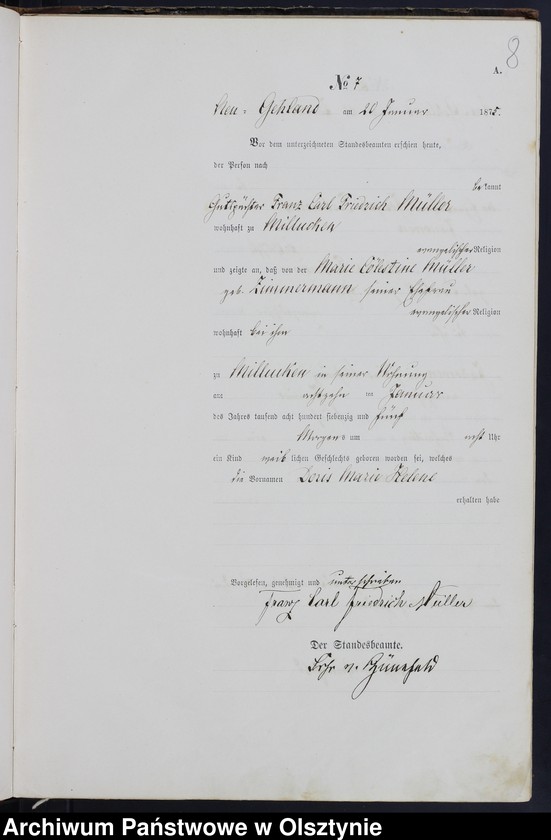 8
A.
No 7
Neu-Gehland am 20 Januar 1875.
Vor dem unterzeichneten Standesbeamten erschien heute,
der Person nach
bekannt
Gutspächter Franz Carl Friedrich Müller
wohnhaft zu Millucken
evangelischer Religion
und zeigte an, daß von der Marie Cölestine Müller
geb. Zimmermann seiner Ehefrau
evangelischer Religion
wohnhaft bei ihm
zu Millucken in seiner Wohnung
am achtzehn ten Januar
des Jahres tausend acht hundert siebenzig und fünf
Morgens um acht Uhr
ein Kind weiblichen Geschlechts geboren worden sei, welches
die Vornamen Doris Marie Helene
erhalten habe
Vorgelesen, genehmigt und unterschrieben
Franz Carl Friedrich Müller
Der Standesbeamte.
v.
Archiwum Państwowe w Olsztynie